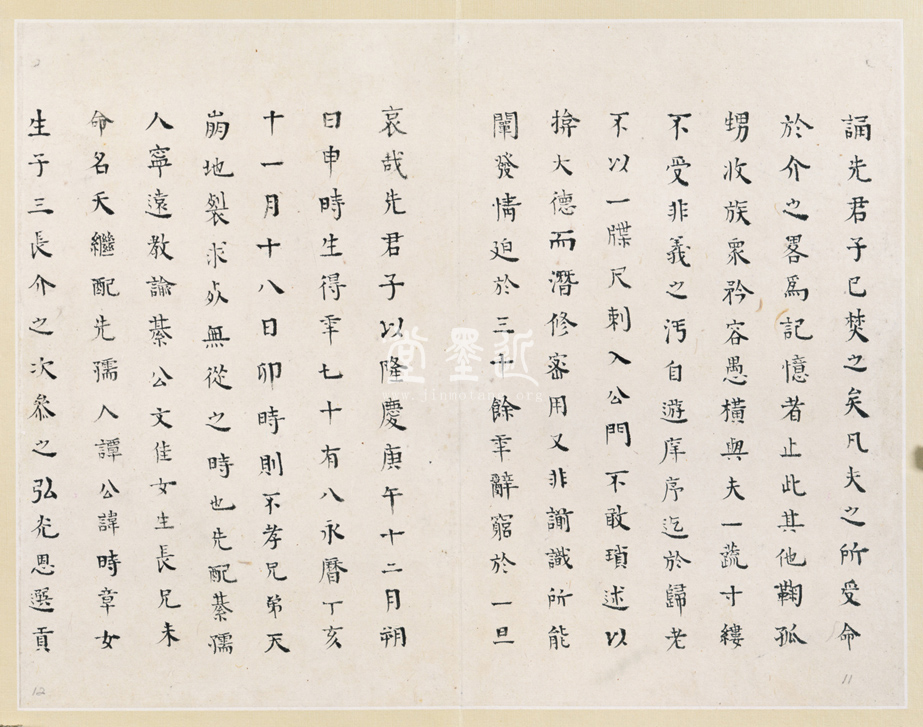 誦先君子已焚之矣凡夫之所受命
於介之畧爲記憶者止此其他鞠孤
甥收族衆矜容愚橫與夫一蔬寸縷
不受非義之汚自遊庠序迄於歸老
不以一牒尺刺入公門不敢瑣述以
揜大德而潛修密用又非谫識所能
闡發情迫於三十餘年辭窮於一旦
哀哉先君子以隆慶庚午十二月朔
日申時生得年七十有八永曆丁亥
十一月十八日卯時則不孝兄弟天
崩地裂求死無從之時也先配綦孺
人寧遠教諭綦公文佳女生長兄未
命名夭繼配先孺人譚公諱時章女
生子三長介之次參之弘光恩選貢
近墨堂
www.jinmotang.org
11
12